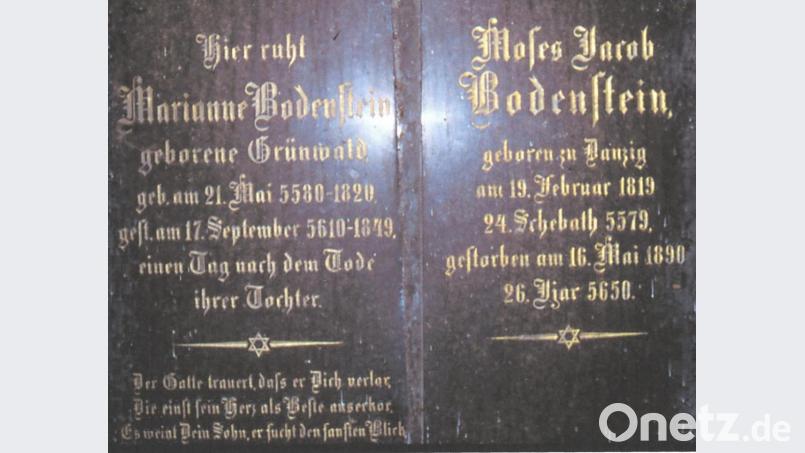 Hier ruht
Marianne Bodenstein
geborene Grünwald,
geb. am 21. Mai 5580-1820,
gest. am 17. September 5610-1849,
einen Tag nach dem Tode
ihrer Tochter.
Der Gatte trauert, daſs er Dich verlor,
Die einst ſein Herz als Beste auserkor,
Es weint Dein Sohn, er ſucht den ſanften Blick
Moſes Jacob
Bodenſtein,
geboren zu Danzig
am 19. Februar 1819
24. Schebath 5579,
geſtorben am 16. Mai 1890
26. Ijar 5650.
Onetz.de